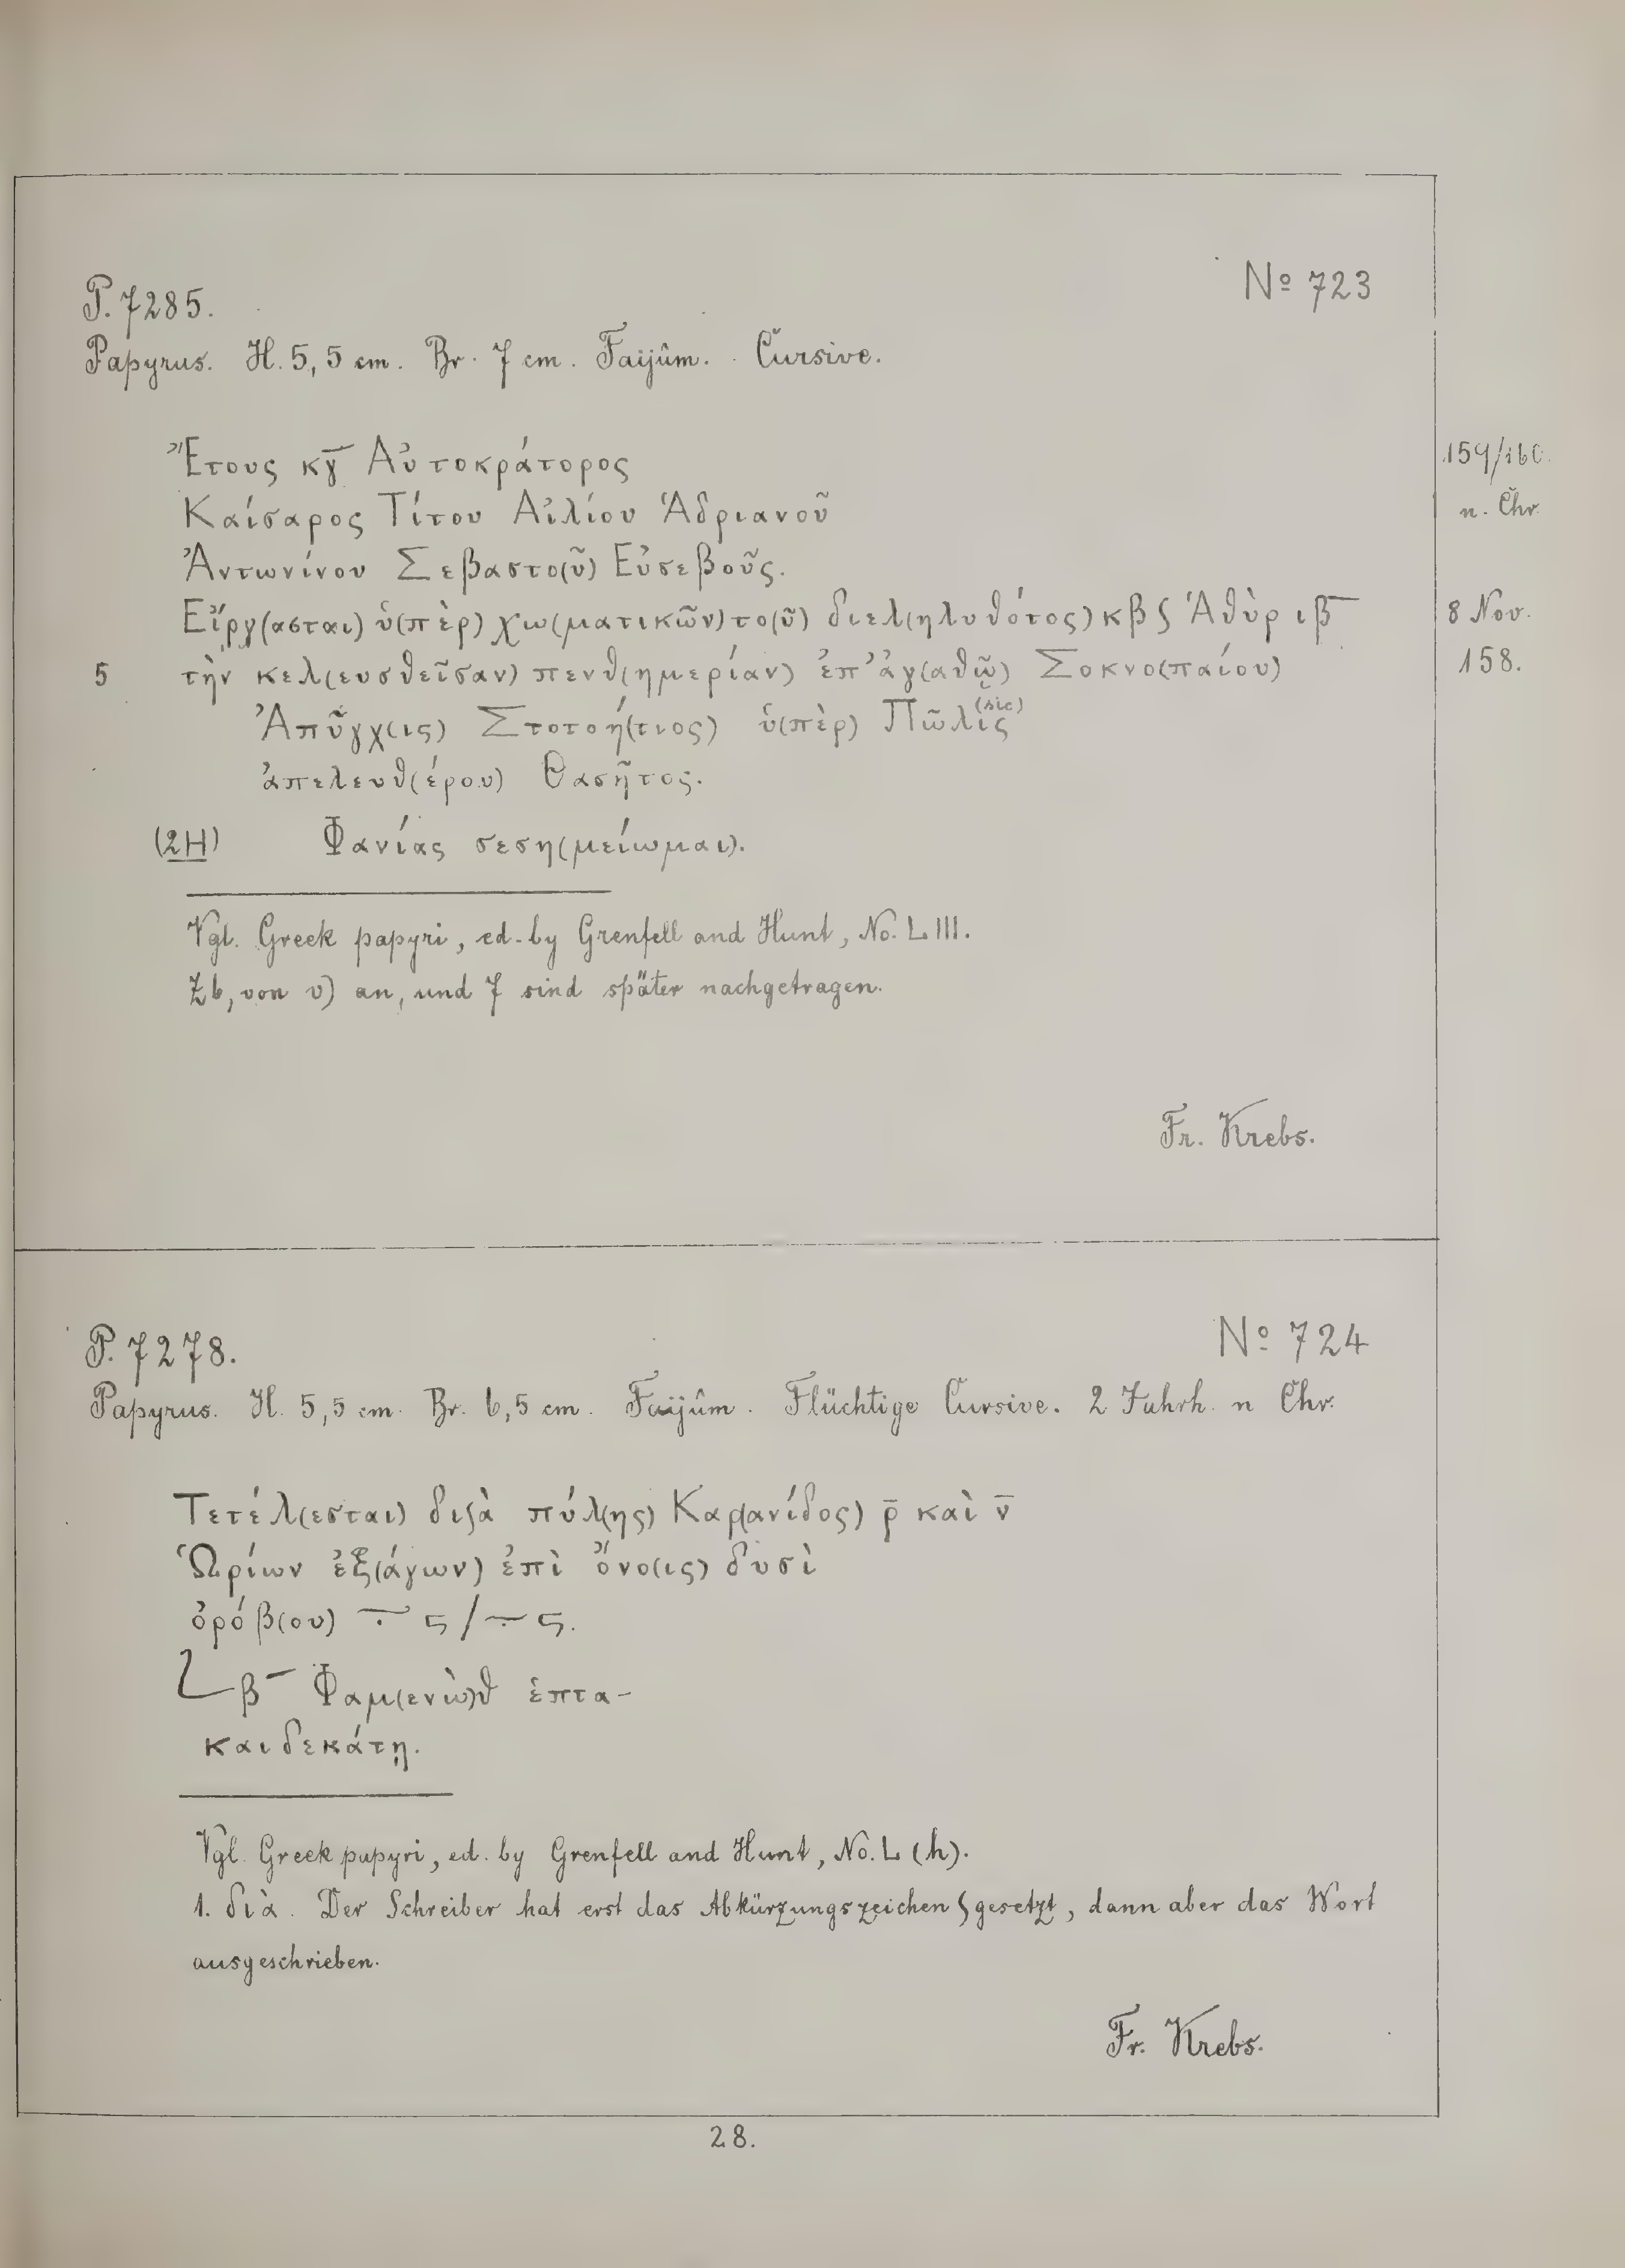 P. 7285.
Nº 723
Papyrus. H. 5,5 cm. Br. 7 cm. Faijûm. Cursive.
Ἔτους κγ̄ Αὐτοκράτορος
159/160.
Καίσαρος Τίτου Αἰλίου Ἁδριανοῦ
n. Chr.
Ἀντωνίνου Σεβαστο(ῦ) Εὐσεβοῦς.
Εἴργ(ασται) ὑ(πὲρ) χω(ματικῶν) το(ῦ) διελ(ηλυθότος) κβ ʃ Ἁθὺρ ιβ̄
8 Nov.
5 τὴν κελ(ευσθεῖσαν) πενθ(ημερίαν) ἐπ' ἀγ(αθῷ) Σοκνο(παίου)
158.
Ἀπῦγχ(ις) Στοτοή(τιος) ὑ(πὲρ) Πῶλις (sic)
ἀπελευθ(έρου) Θασῆτος.
(2H) Φανίας σεση(μείωμαι).
Vgl. Greek papyri, ed. by Grenfell and Hunt, No. LIII.
Z 6, von υ) an, und 7 sind später nachgetragen.
Fr. Krebs.
P. 7278.
Nº 724
Papyrus. H. 5,5 cm. Br. 6,5 cm. Faijûm. Flüchtige Cursive. 2 Jahrh. n Chr.
Τετέλ(εσται) διʃὰ πύλ(ης) Καρ(ανίδος) ρ̄ καὶ ν̄
Ὡρίων ἐξ(άγων) ἐπὶ ὄνο(ις) δυσὶ
ὀρόβ(ου) ⨪ ϛ / ⨪ ϛ.
L β̄ Φαμ(ενὼ)θ ἑπτα-
καιδεκάτῃ.
Vgl. Greek papyri, ed. by Grenfell and Hunt, No. L (h).
1. διὰ. Der Schreiber hat erst das Abkürzungszeichen ʃ gesetzt, dann aber das Wort
ausgeschrieben.
Fr. Krebs.
28.